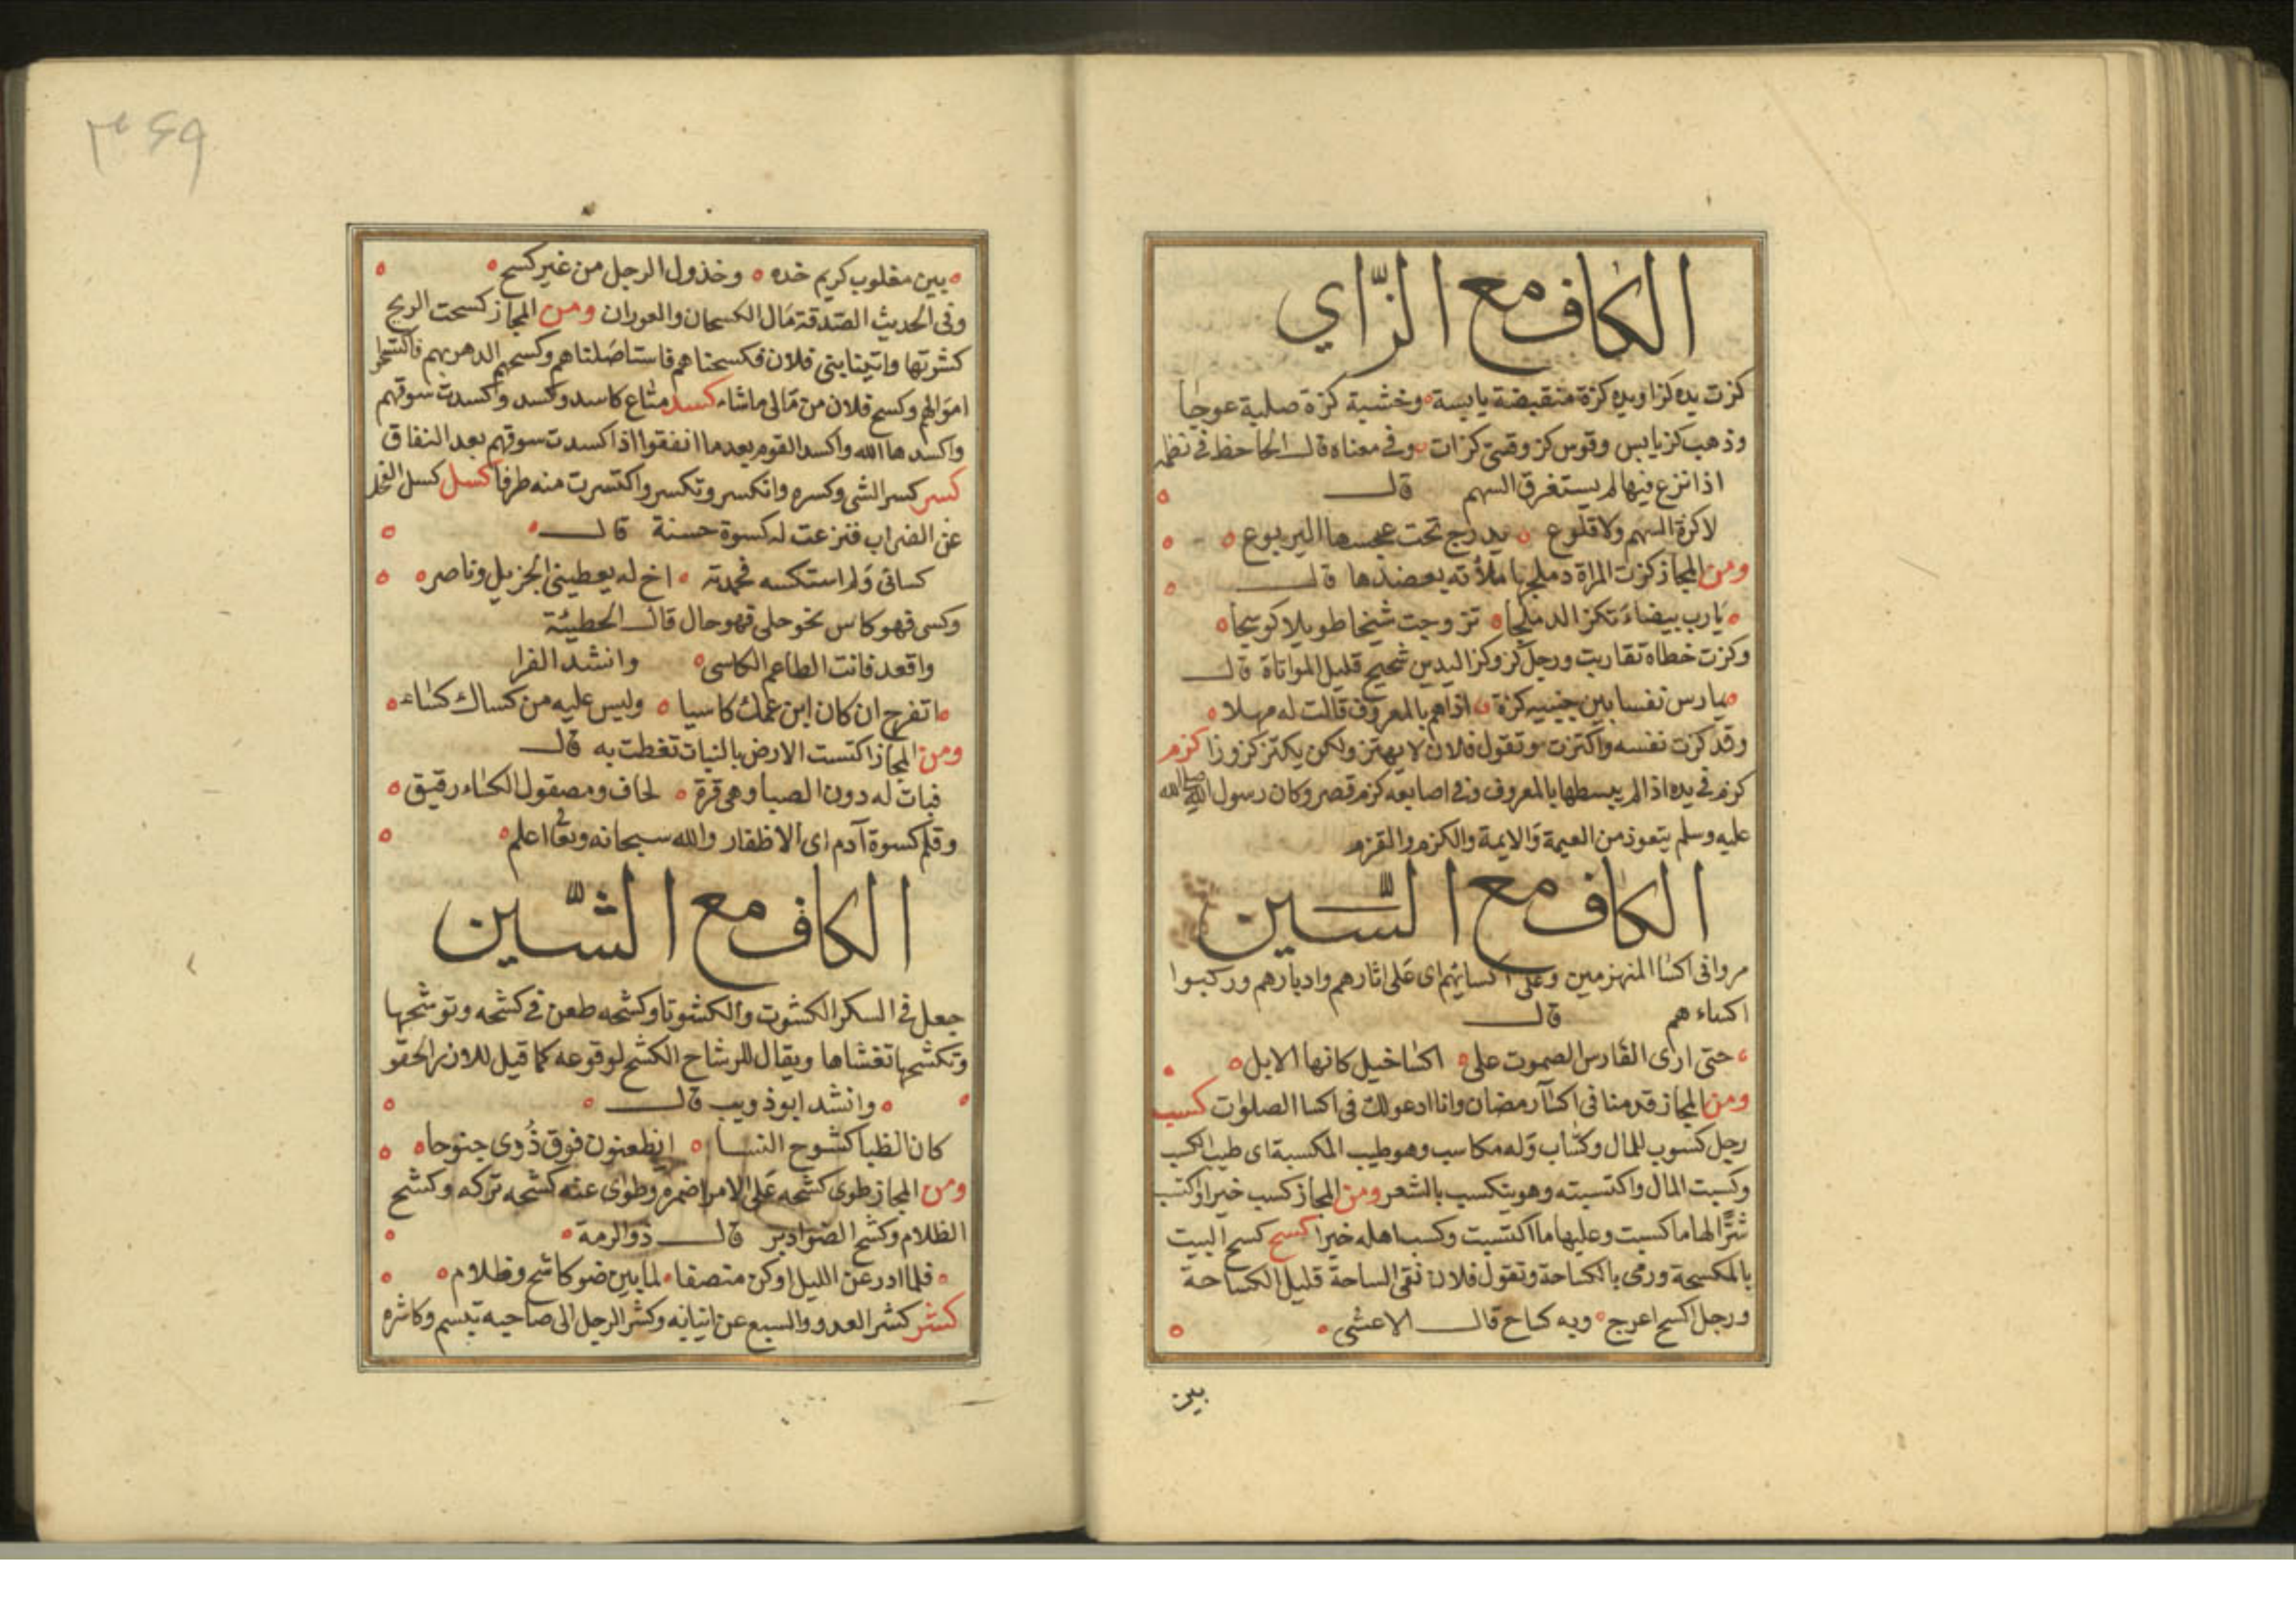 الكاف مع الزّاي
كزت يده كزا ويده كزة منقبضة يابسة وخشبة كزة صلبة عوجا
وذهب كز يابس وقوس كز وقسى كزات وفى معناه قال الجاحظ فى نظمه
اذا نزع فيها لم يستغرق السهم قال
لا كزة السهم ولا قلوع يدرج تحت عجسها اليربوع
ومن المجاز كزت المراة دملجها ملأته بعضدها قال
يارب بيضاء تكز الدملجا تزوجت شيخا طويلا كوسجا
وكزت خطاه تقاربت ورجل كز وكز اليدين شحيح قليل المواتاة قال
يمارس نفسا بين جنبيه كزة اذا هم بالمعروف قالت له مهلا
وقد كزت نفسه واكتزت وتقول فلان لا يهتز ولكن يكتز كزوزا كزم
كزم فى يده اذا لم يبسطها بالمعروف وفى اصابعه كزم قصر وكان رسول الله صلى الله
عليه وسلم يتعوذ من العيمة والايمة والكزم والقزم
الكاف مع السّين
مروا فى اكسا المنهزمين وعلى اكسائهم اى على اثارهم وادبارهم وركبوا
اكساء هم قال
حتى ارى الفارس الصموت على اكسا خيل كانها الابل
ومن المجاز قدمنا فى اكسآ رمضان وانا ادعو لك فى اكسا الصلوات كسب
رجل كسوب للمال وكساب وله مكاسب وهو طيب المكسبة اى طيب الكسب
وكسبت المال واكتسبته وهو يتكسب بالشعر ومن المجاز كسب خيرا واكتسب
شرًّا لها ما كسبت وعليها ما اكتسبت وكسب اهله خيرا كسح كسح البيت
بالمكسحة ورمى بالكساحة وتقول فلان نقى الساحة قليل الكساحة
ورجل اكسح اعرج وبه كساح قال الاعشى
بين
٣۶٩
بين مغلوب كريم خده وخذول الرجل من غير كسح
وفى الحديث الصدقة مال الكسحان والعوران ومن المجاز كسحت الريح
كشرتها واتينا بنى فلان فكسحناهم فاستاصلناهم وكسحهم الدهر بهم فاكتسح
اموالهم وكسح فلان من مالى ماشاء كسد متاع كاسد وكسد واكسدت سوقهم
واكسدها الله واكسد القوم بعد ما انفقوا اذا كسدت سوقهم بعد النفاق
كسر كسر الشى وكسره وانكسر وتكسر واكتسرت منه طرفا كسل كسل الفحل
عن الضراب فنزعت له كسوة حسنة قال
كسانى ولم استكسه فحمدته اخ له يعطينى الجزيل وناصر
وكسى فهو كاس نحو حلى فهو حال قال الحطيئة
واقعد فانت الطاعم الكاسى وانشد الفرا
اتفرح ان كان ابن عمك كاسيا وليس عليه من كساك كساء
ومن المجاز اكتست الارض بالنبات تغطت به قال
فبات له دون الصبا وهى قرة لحاف ومصقول الكساء رقيق
وقلم كسوة آدم اى الاظفار والله سبحانه وتعالى اعلم
الكاف مع الشّين
جعل فى السكر الكشوت والكشوتا وكشحه طعن فى كشحه وتوشحها
وتكشحها تغشاها ويقال للوشاح الكشح لوقوعه كما قيل للازار الحقو
وانشد ابو ذويب قال
كان الظبا كشوح النسا انطعنون فوق ذُوى جنوحا
ومن المجاز طوى كشحه على الامر اضمره وطوى عنه كشحه تركه وكشح
الظلام وكشح الضوادبر قال ذو الرمة
فلما ادرعن الليل او كن منصفا لما بين ضو كاشح وظلام
كشر كشر العدو والسبع عن انيابه وكشر الرجل الى صاحبه تبسم وكاشره